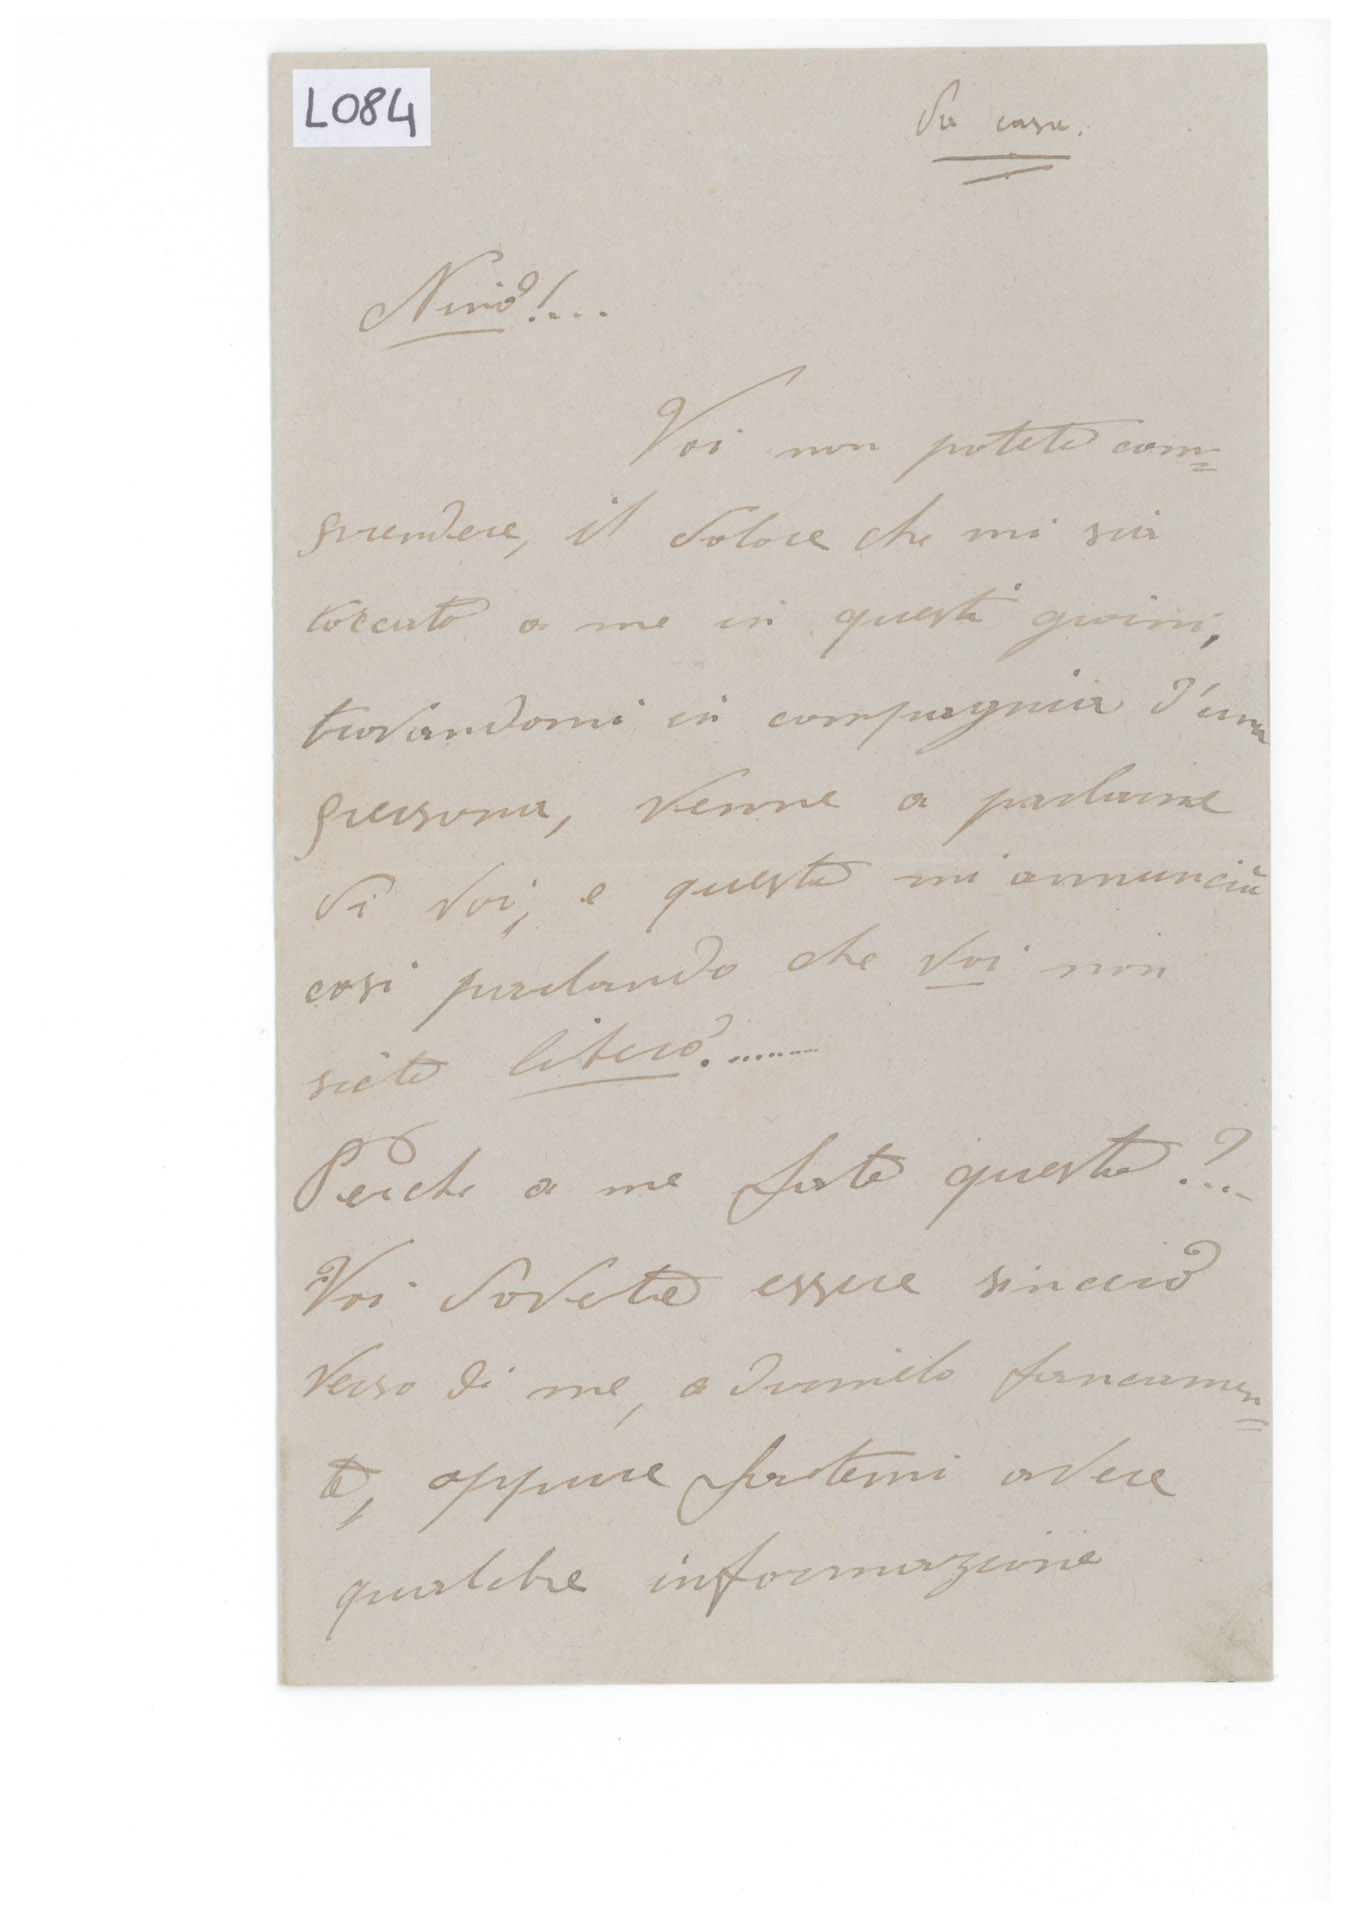 L084
Da casa.
Nino!...
Voi non potete com=
prendere, il dolore che mi sia
toccato a me in questi giorni,
trovandomi in compagnia d'una
persona, venne a parlarne
di voi, e questa mi annunciò
così parlando che voi non
siete libero.......
Perchè a me fate questo?...
Voi dovete essere sincero
verso di me, e dirmelo francamen=
te, oppure fatemi avere
qualche informazione